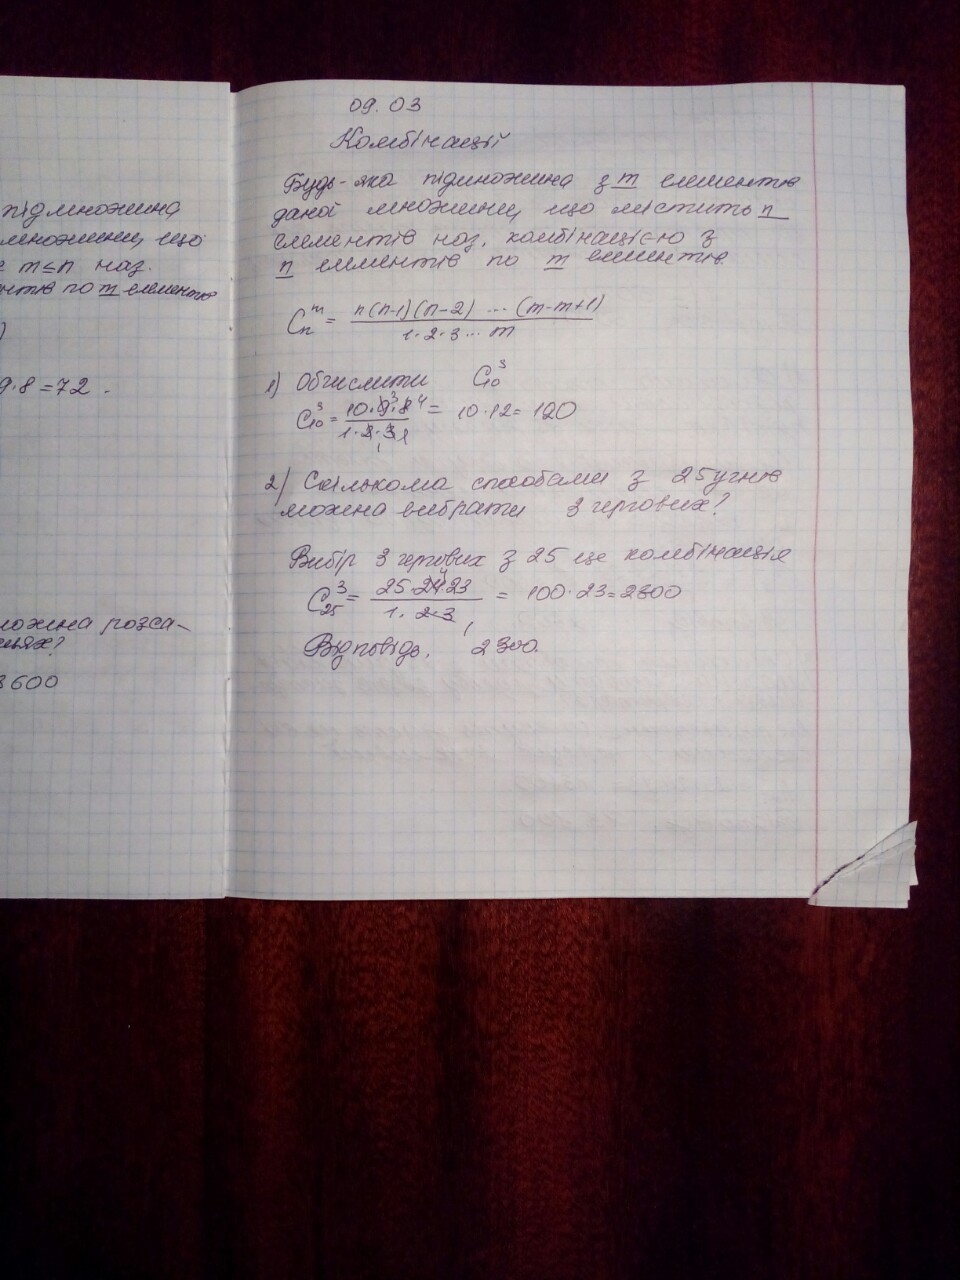 підмножина
множини, що
m≤n наз.
по m елементів
9·8=72.
можна розса-
3600
09.03
Комбінації
Будь-яка підмножина з m елементів
даної множини, що містить n
елементів наз. комбінацією з
n елементів по m елементів.
C_n^m = \frac{n(n-1)(n-2) ... (m-m+1)}{1·2·3... m}
1) Обчислити C_{10}^3
C_{10}^3 = \frac{10·9·8}{1·2·3} = 10·12=120
2) Скількома способами з 25 учнів
можна вибрати 3 чергових?
Вибір 3 чергових з 25 це комбінація
C_{25}^3 = \frac{25·24·23}{1·2·3} = 100·23=2300
Відповідь. 2300.